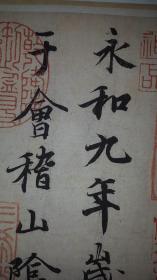 永和九年歲
于會稽山陰